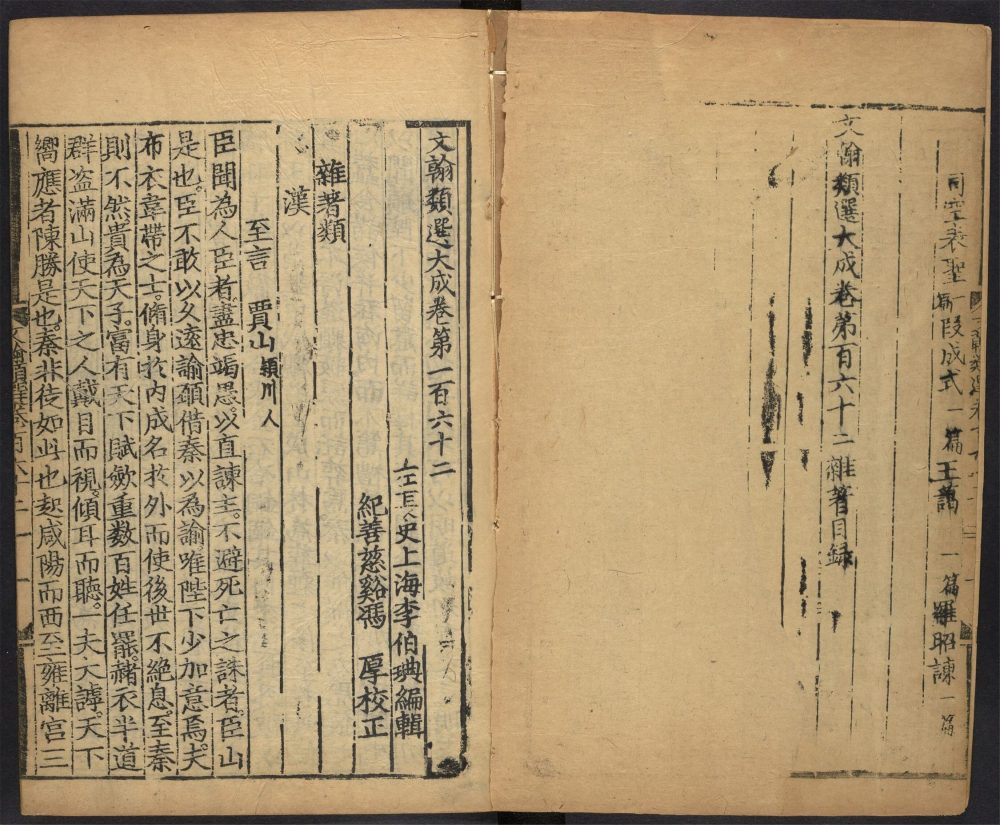 司空表聖一篇 段成式一篇 王藹一篇 羅昭諫一篇
文翰類選大成卷第百六十二雜著目録
文翰類選大成卷第一百六十二
左長史上海李伯璵編輯
紀善慈谿馮厚校正
雜著類
漢
至言 賈山 穎川人
臣聞為人臣者盡忠竭愚以直諫主不避死亡之誅者臣山
是也臣不敢以久遠諭願借秦以為諭唯陛下少加意焉夫
布衣韋帶之士脩身於内成名於外而使後世不絶息至秦
則不然貴為天子富有天下賦斂重數百姓任罷赭衣半道
群盗滿山使天下之人戴目而視傾耳而聽一夫大謼天下
嚮應者陳勝是也秦非徒如此也起咸陽而西至雍離宫三